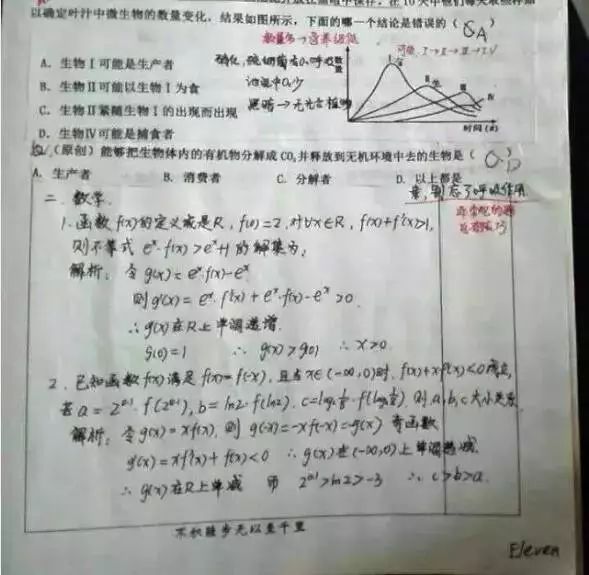 以确定叶汁中微生物的数量变化，结果如图所示，下面的哪一个结论是错误的（ A ）
数量多→营养级低
可能 I→II→III→IV
A. 生物 I 可能是生产者
数量
B. 生物 II 可能以生物 I 为食
C. 生物 II 紧随生物 I 的出现而出现
黑暗→无光合植物
D. 生物 IV 可能是捕食者
时间(d)
I
II
III
IV
（原创）能够把生物体内的有机物分解成 CO₂ 并释放到无机环境中去的生物是（ D ）
A. 生产者 B. 消费者 C. 分解者 D. 以上都是
忘了呼吸作用
二、数学.
1. 函数 f(x)的定义域是R, f(0)=2, 对∀x∈R, f(x)+f'(x)>1,
则不等式 eˣ·f(x)>eˣ+1 的解集为:
解析: 令 g(x)=eˣ·f(x)-eˣ
则 g'(x)=eˣ·f'(x)+eˣ·f(x)-eˣ>0
∴ g(x)在R上单调递增.
g(0)=1 ∴ g(x)>g(0) ∴ x>0
2. 已知函数 f(x)满足 f(x)=f(-x), 且当 x∈(-∞,0)时, f(x)+xf'(x)<0成立,
若 a=2^0.1·f(2^0.1), b=ln2·f(ln2), 则 a,b,c大小关系
解析: 令 g(x)=xf(x), 则 g(-x)=-xf(-x)=-g(x) 奇函数
g'(x)=xf'(x)+f(x)<0 ∴ g(x)在(-∞,0)上单调递减.
∴ g(x)在R上单减 而 2^0.1>ln2>-3 ∴ c>b>a.
不积跬步无以至千里
Eleven